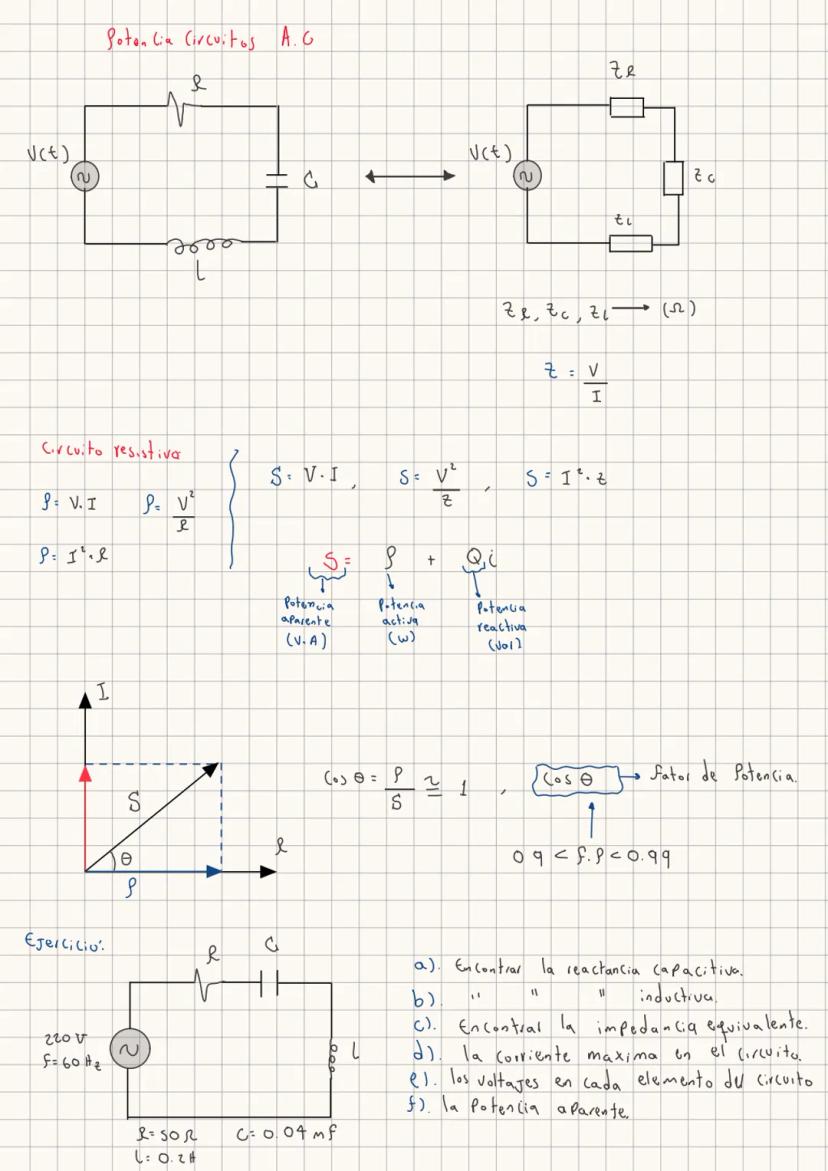 Potencia Circuitos A.C
R
V(t)
C
L
ZR
V(t)
Zc
ZL
ZR, Zc, ZL → (Ω)
Z = V/I
Circuito resistivo
P= V.I P= V²/R
P= I².R
S= V.I , S= V²/Z , S= I².Z
S= P + Qi
Potencia aparente (V.A)
Potencia activa (W)
Potencia reactiva
I
S
θ
R
P
Cos θ = P/S ≃ 1 , Cos θ → Fator de Potencia.
0 9 < F.P < 0.99
Ejercicio:
R
C
220 V
F= 60 Hz
L
R= 50 Ω C= 0.04 mf
L= 0.2 H
a). Encontrar la reactancia capacitiva.
b). " " " inductiva.
c). Encontrar la impedancia equivalente.
d). la corriente maxima en el circuito.
e). los voltajes en cada elemento del circuito
f). la Potencia aparente.